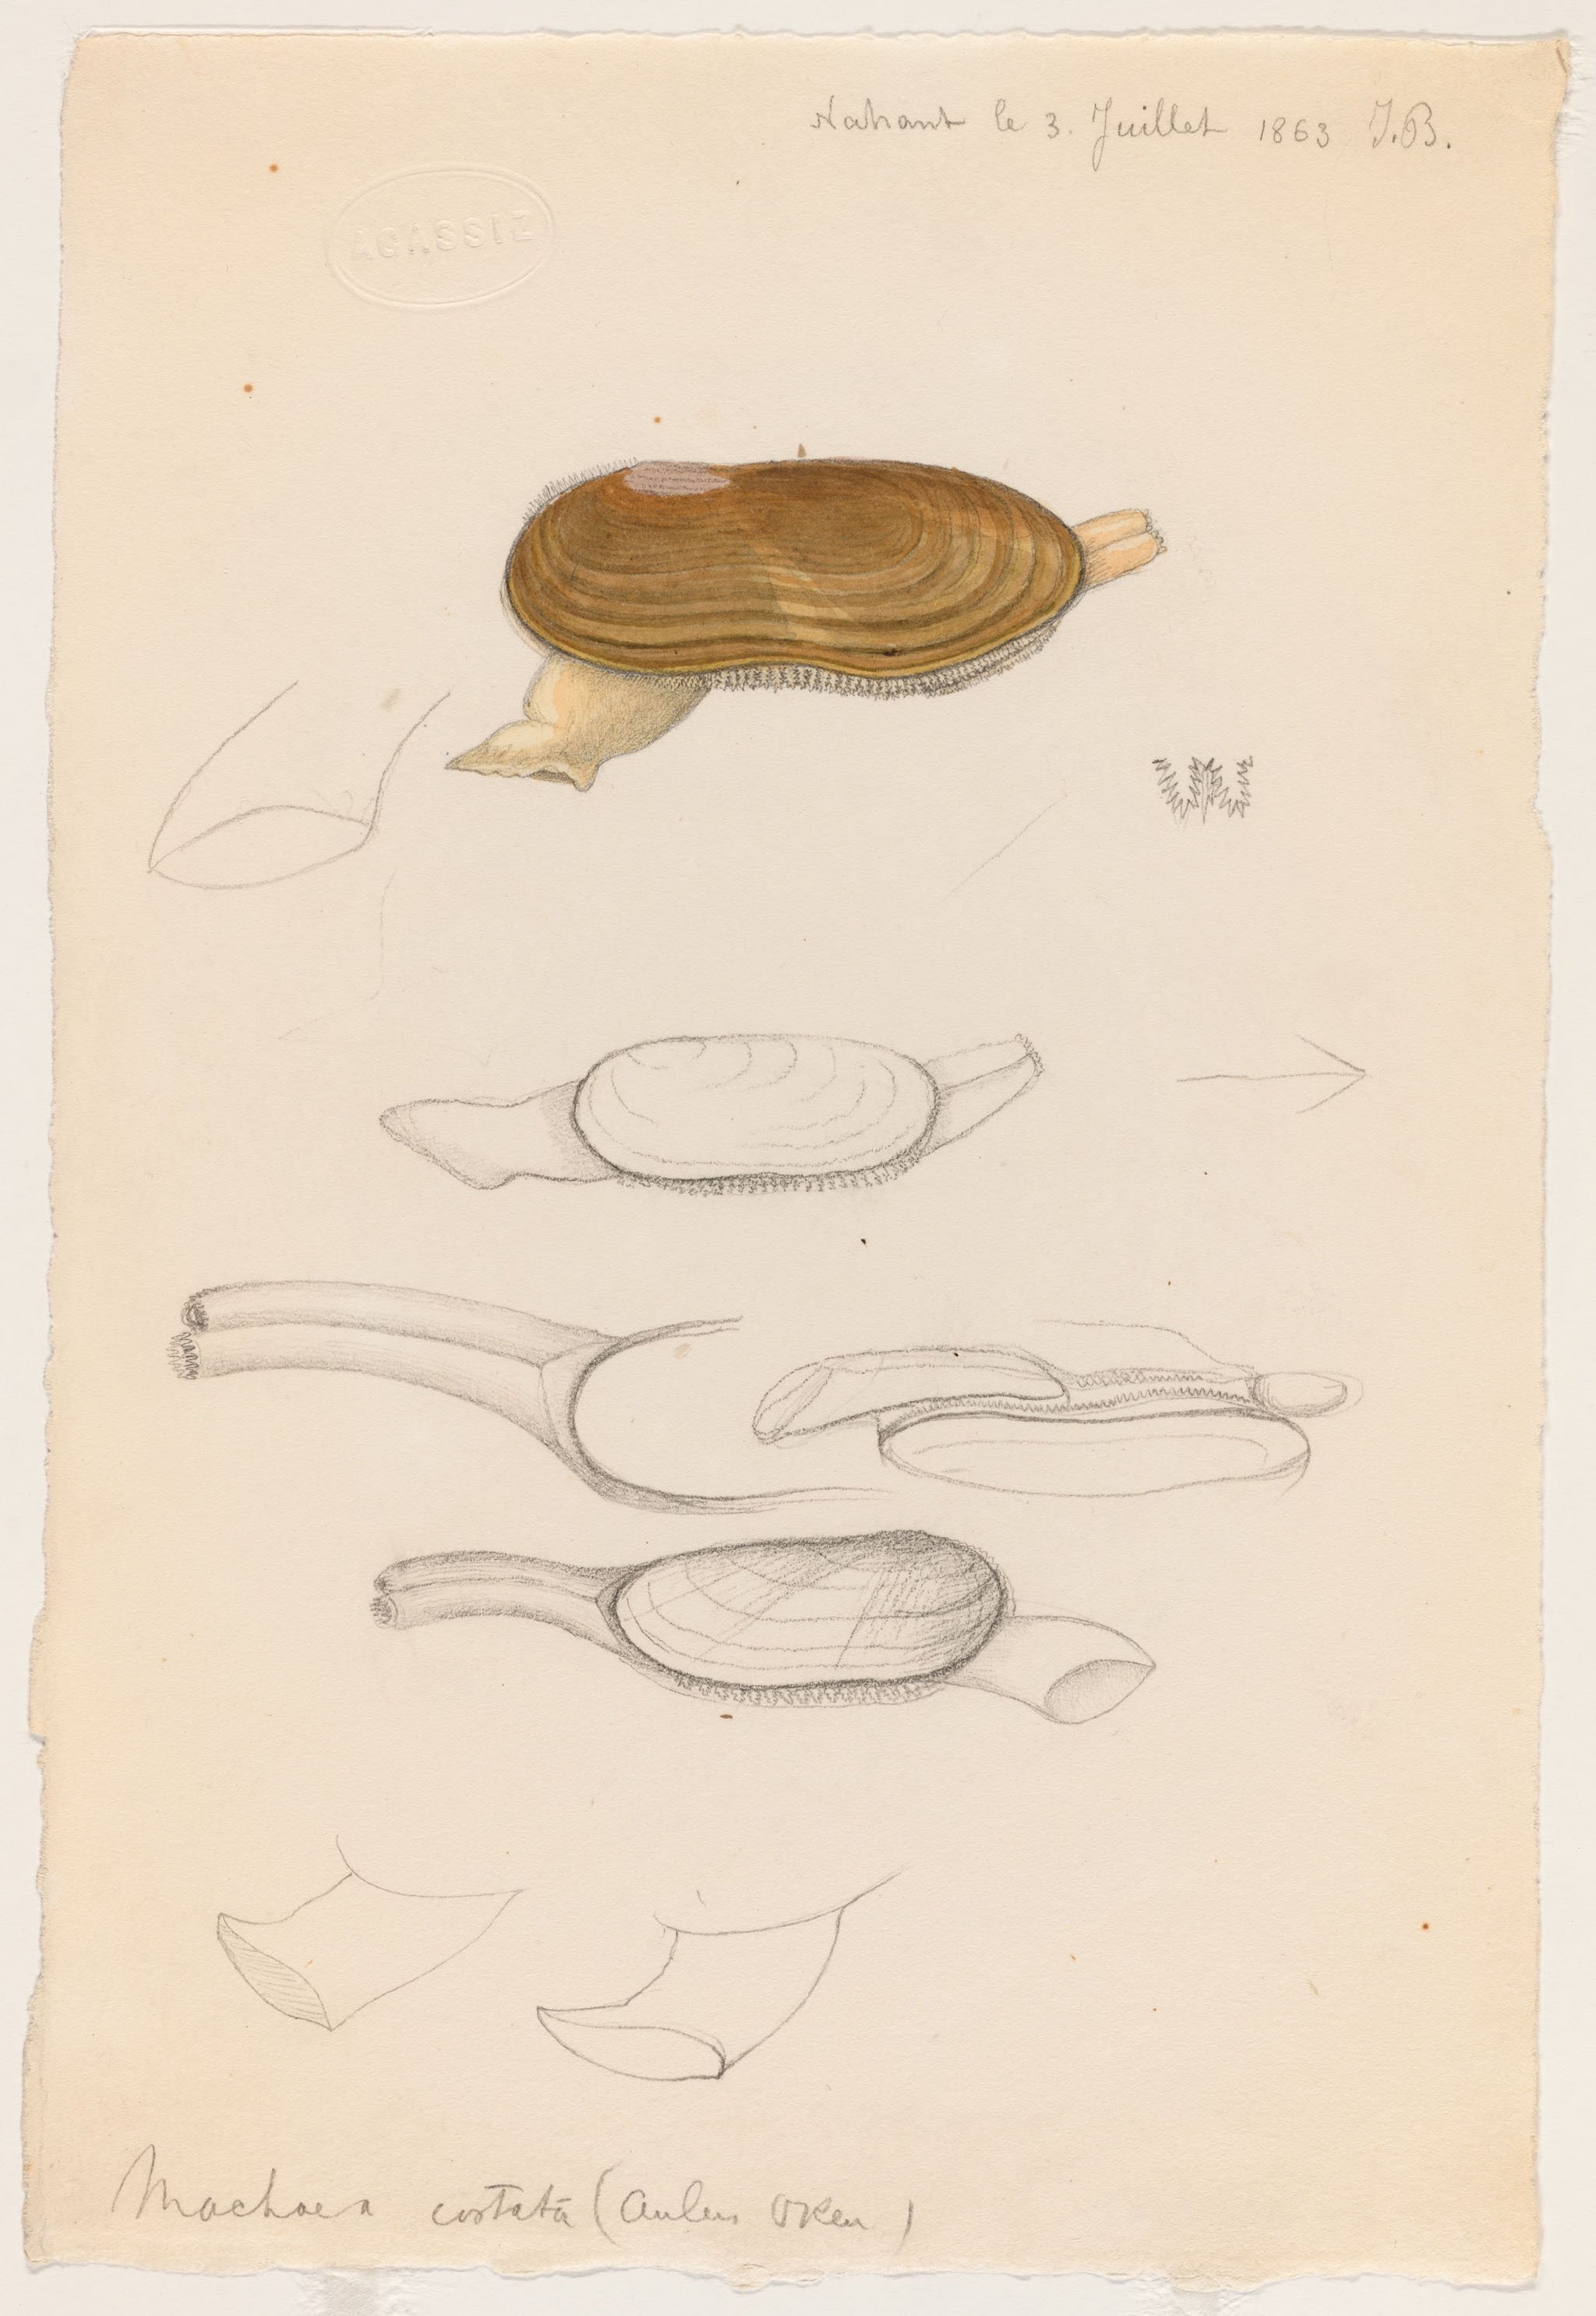 Nahant le 3. Juillet 1863 J.B.
AGASSIZ
Machaera costata (Aulus Oken)